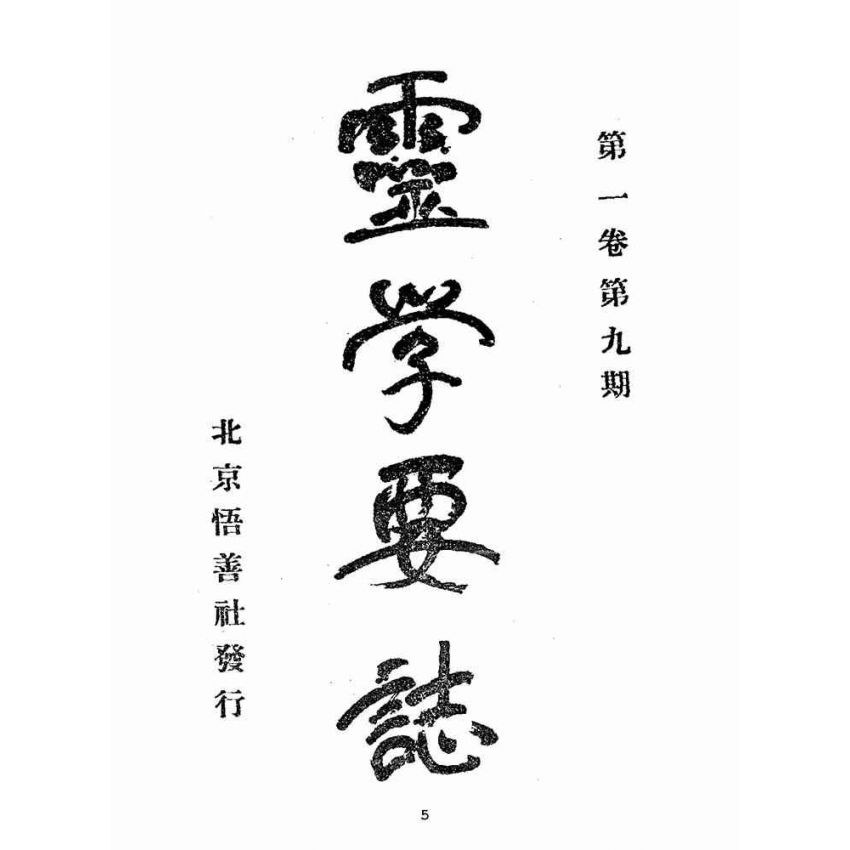 第一卷第九期
靈学要誌
北京悟善社發行
5